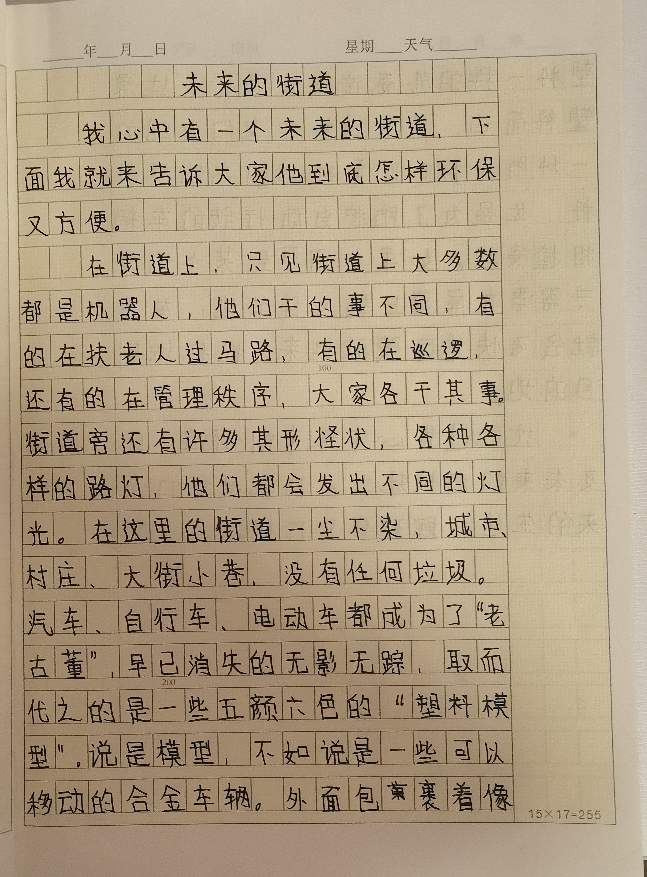 年 月 日 星期 天气
未来的街道
我心中有一个未来的街道,下
面我就来告诉大家他到底怎样环保
又方便。
在街道上,只见街道上大多数
都是机器人,他们干的事不同,有
的在扶老人过马路,有的在巡逻,
100
还有的在管理秩序,大家各干其事。
街道旁还有许多其形怪状,各种各
样的路灯,他们都会发出不同的灯
光。在这里的街道一尘不染,城市、
村庄、大街小巷,没有任何垃圾。
汽车、自行车、电动车都成为了“老
古董”,早已消失的无影无踪,取而
200
代之的是一些五颜六色的“塑料模
型”。说是模型,不如说是一些可以
移动的合金车辆。外面包裹着像
15×17=255